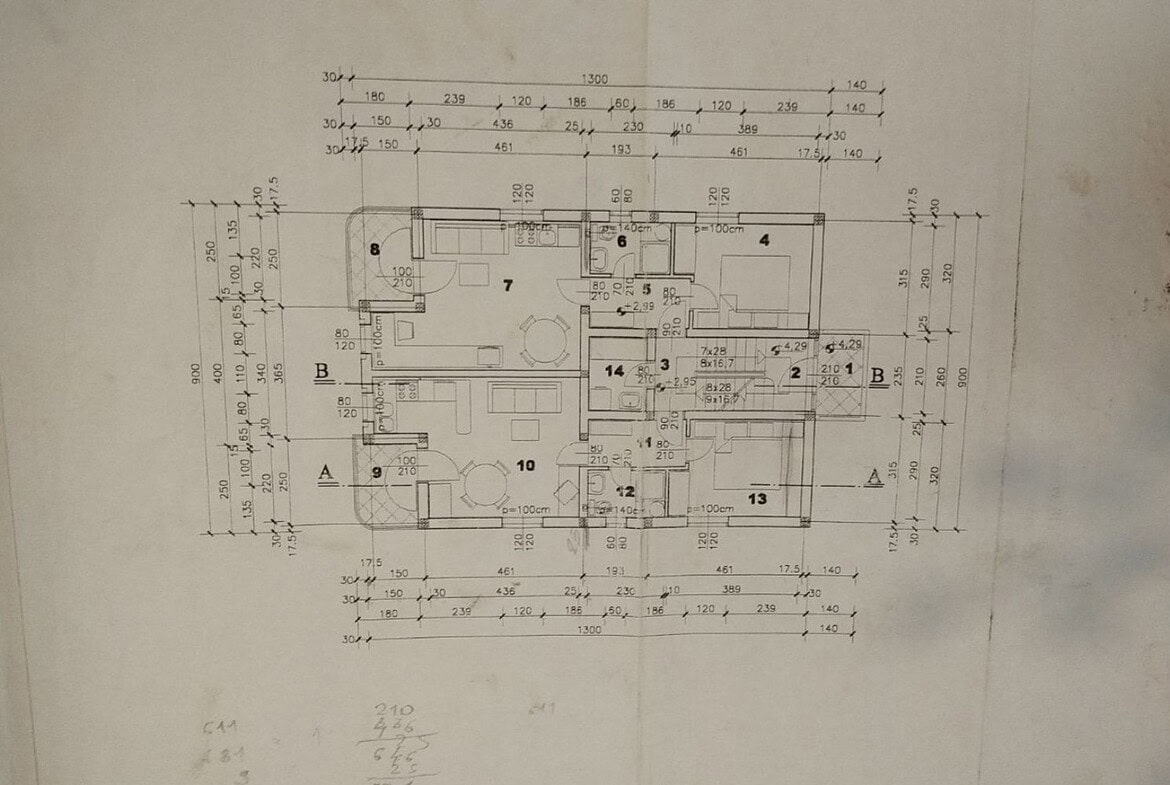 30 1300 140
180 239 120 186 60 186 120 239 140
30 150 30 436 25 230 10 389 30
17.5
30 150 461 193 461 17.5 140
120 120
60 80
120 120
p=100cm p=140cm p=100cm
8 7 6 4
100
210
80
210
70
210
5
+2,99
80
210
90
210
80
120
p=100cm
14
80
210
3
7x28
8x16,7
+4,29
2
+4,29
1
210
210
B B
+2,95
8x28
9x16,7
80
120
p=100cm
90
210
11
80
210
70
210
80
210
100
210
A 9 10 12 13 A
p=100cm p=140cm p=100cm
120 120
60 80
120 120
900
400
250 15 250
135 100 65 80 110 80 65 100 135
30 220 30 340 30 220 30
17.5 250 365 250 17.5
17.5 315 235 315 17.5
30 290 25 210 25 290 30
320 260 320
900
17.5
30 150 461 193 461 17.5 140
30 150 30 436 25 230 10 389 30
180 239 120 186 60 186 120 239 140
30 1300 140
210
436
646
25